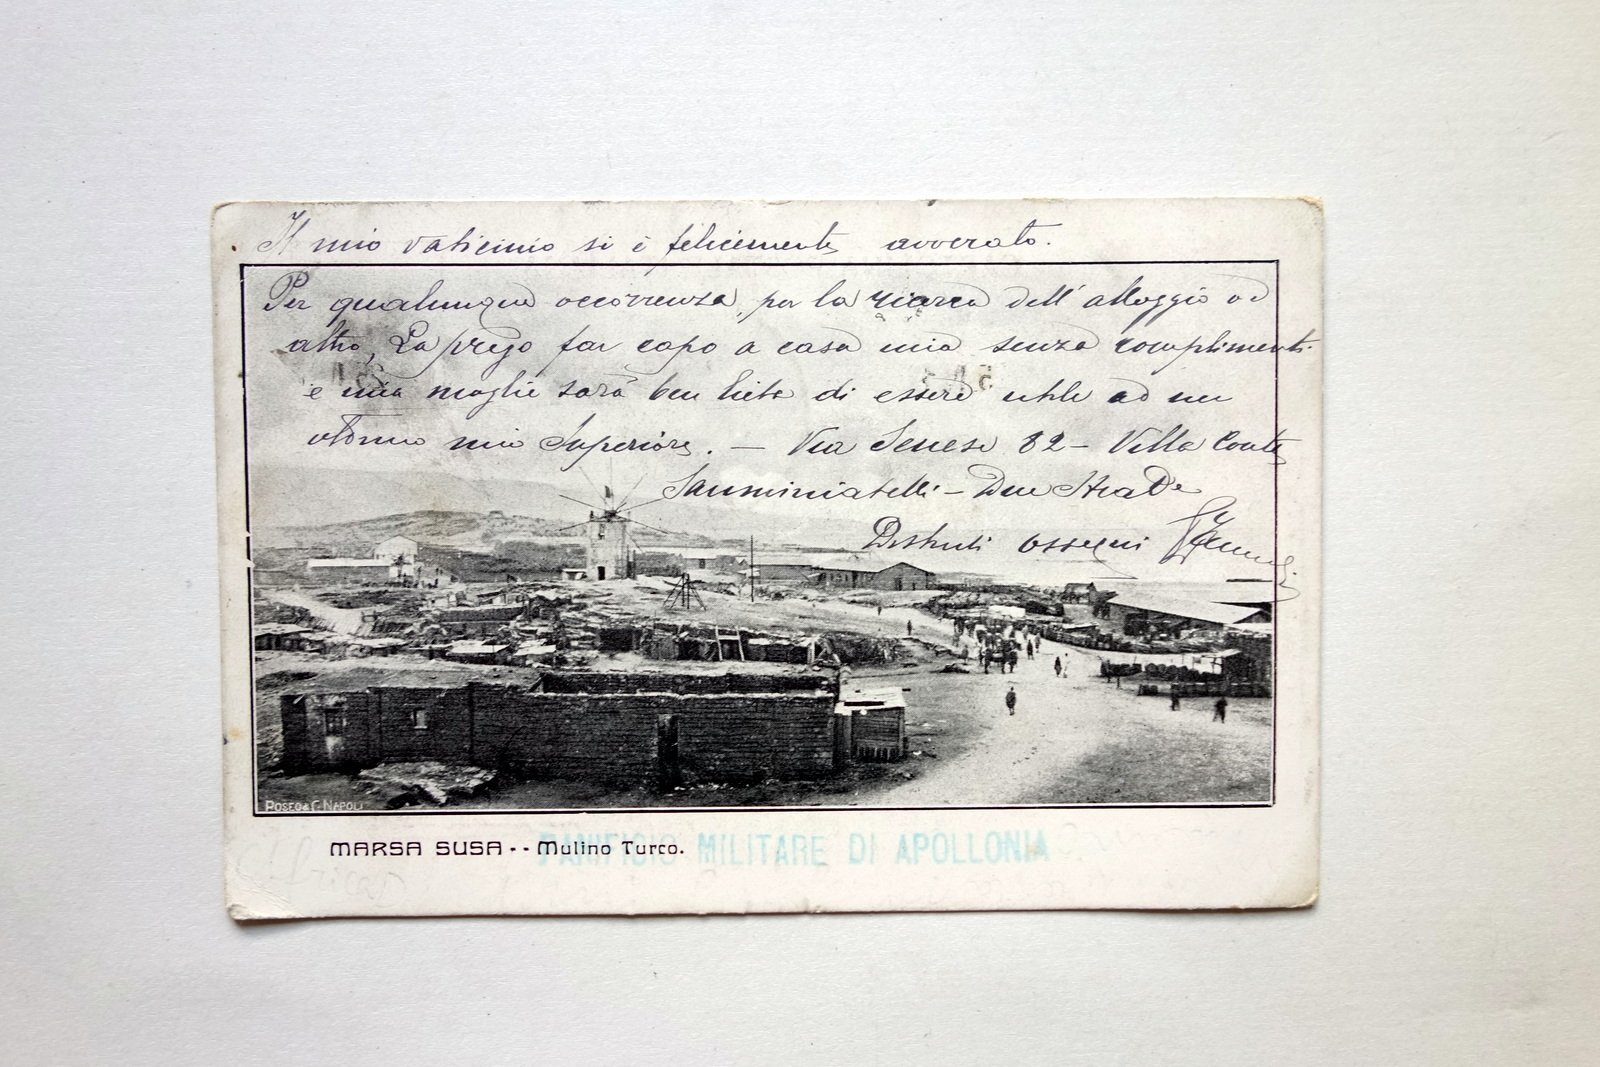 Il mio vaticinio si è felicemente avverato.
Per qualunque occorrenza, per la ricerca dell' alloggio od
altro, La prego far capo a casa mia senza complimenti
e mia moglie sarà ben lieta di essere utile ad un
ottimo mio Superiore. — Via Senese 82 — Villa Conte
Sanminiatelli — Due Strade
Distinti ossequi
POSEO & C. NAPOLI
MARSA SUSA -- Mulino Turco.
PANIFICIO MILITARE DI APOLLONIA